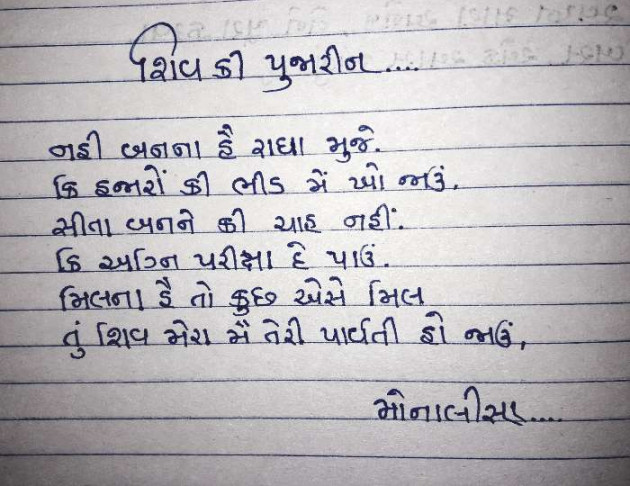 શિવ કી પુજારીન....
નહી બનના હૈ રાધા મુજે.
કિ હજારોં કી ભીડ મેં ખો જાઉં.
સીતા બનને કી ચાહ નહીં.
કિ અગ્નિ પરીક્ષા દે પાઉં.
મિલના હૈ તો કુછ એસે મિલ
તું શિવ મેરા મૈં તેરી પાર્વતી હો જાઉં,
મોનાલીસા....